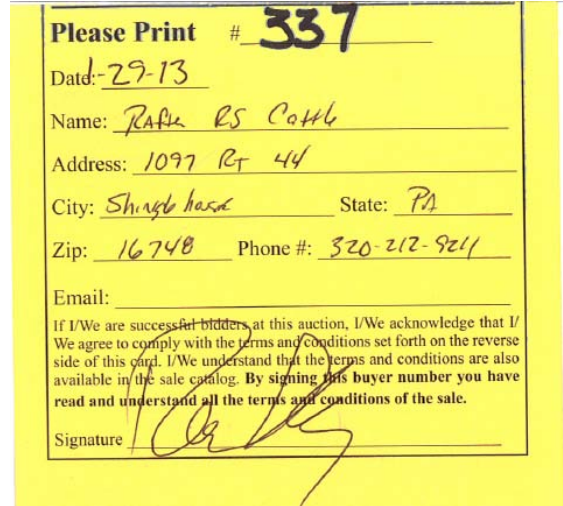 Please Print # 337
Date: 1-29-13
Name: Rafter RS Cattle
Address: 1097 RT 44
City: Shinglehouse State: PA
Zip: 16748 Phone #: 320-212-9211
Email:
If I/We are successful bidders at this auction, I/We acknowledge that I/
We agree to comply with the terms and conditions set forth on the reverse
side of this card. I/We understand that the terms and conditions are also
available in the sale catalog. By signing this buyer number you have
read and understand all the terms and conditions of the sale.
Signature